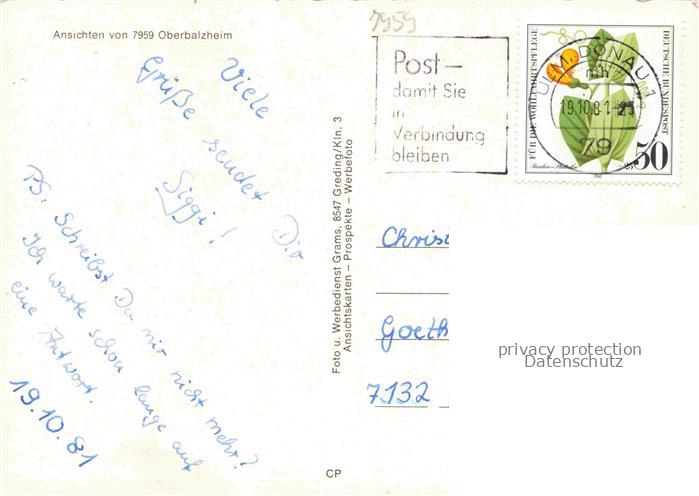 Ansichten von 7959 Oberbalzheim
7959
Post–
damit Sie
in
Verbindung
bleiben
ULM, DONAU 1
mh
19.10.81-23
79
FÜR DIE WOHLFAHRTSPFLEGE
DEUTSCHE BUNDESPOST
50
Viele
Grüße sendet Dir
Siggi!
PS. Schreibst Du mir nicht mehr?
Ich warte schon lange auf
eine Antwort.
19.10.81
Foto u. Werbedienst Grams, 8547 Greding/Kln. 3
Ansichtskarten – Prospekte – Werbefoto
Christ
Goeth
7132
privacy protection
Datenschutz
CP